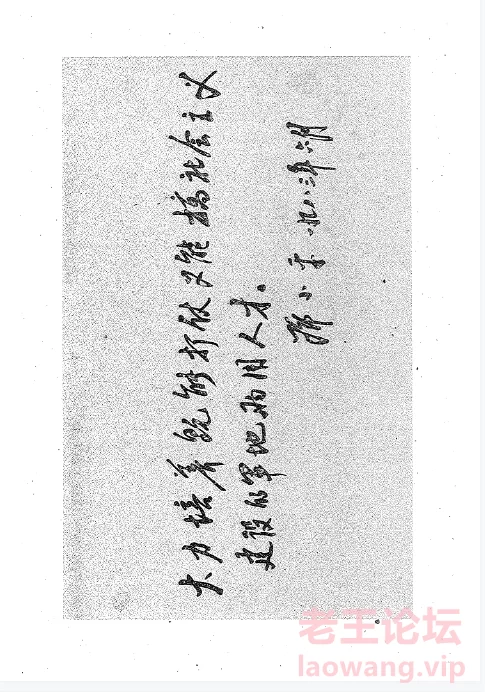 大力培养既能打仗又能搞社会主义
建设的军地两用人才。
邓小平 一九八三年六月
老王论坛
laowang.vip